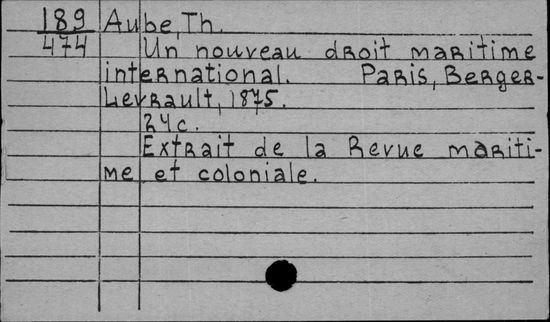 189 Aube, Th.
474 Un nouveau droit maritime
international. Paris, Berger-
Levrault, 1875.
24c.
Extrait de la Revue mariti-
me et coloniale.